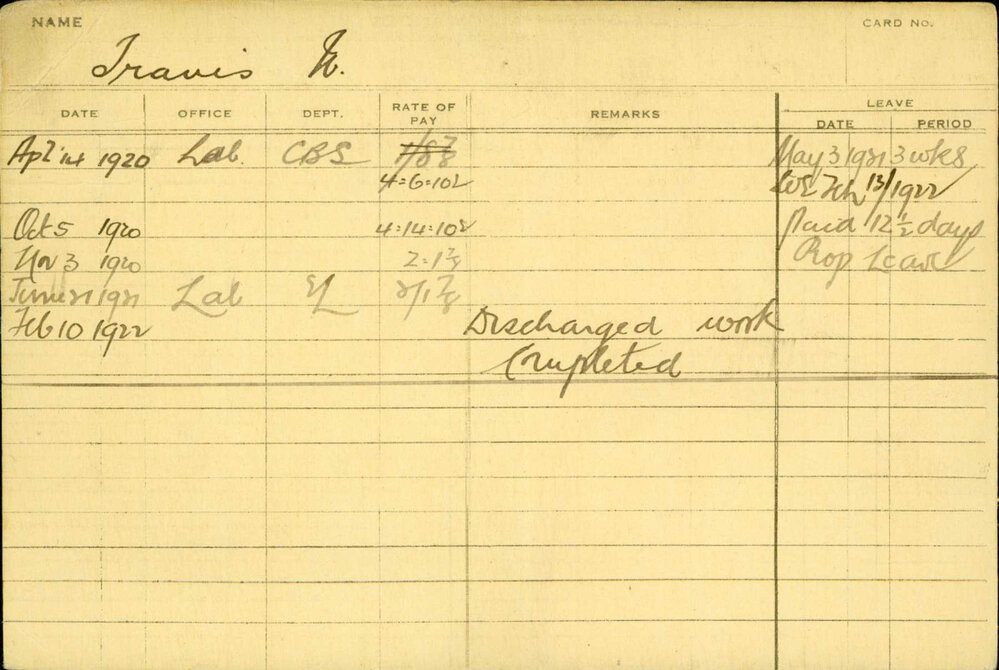 NAME
CARD No.
Travis
DATE OFFICE DEPT. RATE OF PAY REMARKS LEAVE
DATE PERIOD
Apl 14 1920 Lab. May 3 1921 3 wks
4=6=10½ Feb 13/1922
Oct 5 1920 4=14=10½ paid 12½ days
Nov 3 1920 2=1⅞ Prop Leave
June 21 1921 Lab 2/1⅞
Feb 10 1922 Discharged work
Completed